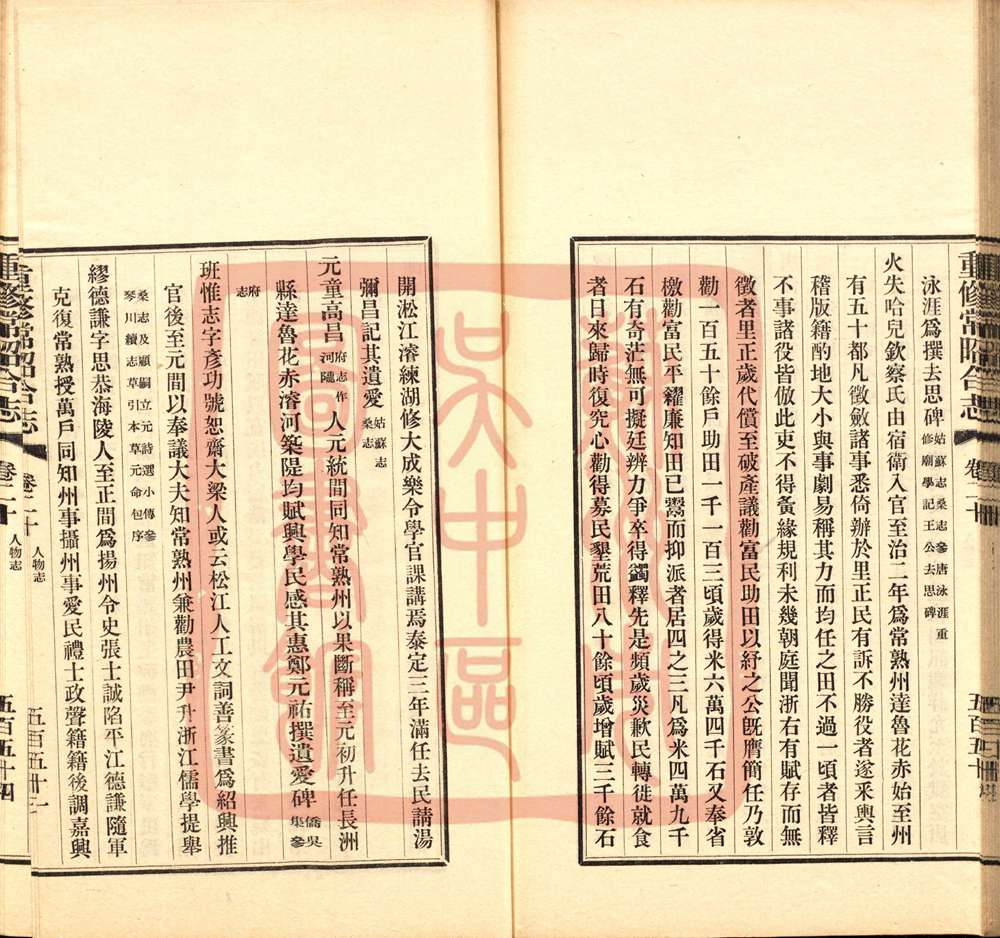 泳涯爲撰去思碑姑蘇志桑志參唐泳涯重修廟學記王公去思碑
火失哈兒欽察氏由宿衛入官至治二年爲常熟州達魯花赤始至州
有五十都凡徵斂諸事悉倚辦於里正民有訴不勝役者遂釆輿言
稽版籍酌地大小與事劇易稱其力而均任之田不過一頃者皆釋
不事諸役皆倣此吏不得夤緣規利未幾朝庭聞浙右有賦存而無
徵者里正歲代償至破產議勸富民助田以紓之公旣膺簡任乃敦
勸一百五十餘戶助田一千一百三頃歲得米六萬四千石又奉省
檄勸富民平糴廉知田已鬻而抑派者居四之三凡爲米四萬九千
石有奇茫無可擬廷辨力爭卒得蠲釋先是頻歲災歉民轉徙就食
者日來歸時復究心勸得募民墾荒田八十餘頃歲增賦三千餘石
開淞江濬練湖修大成樂令學官課講焉泰定三年滿任去民請湯
彌昌記其遺愛姑蘇志桑志
元童高昌府志作河隴人元統間同知常熟州以果斷稱至元初升任長洲
縣達魯花赤濬河築隄均賦興學民感其惠鄭元祐撰遺愛碑僑吳集參
府志
班惟志字彥功號恕齋大梁人或云松江人工文詞善篆書爲紹興推
官後至元間以奉議大夫知常熟州兼勸農田尹升浙江儒學提舉
桑志及顧嗣立元詩選小傳參琴川續志草引本草元命包序
繆德謙字思恭海陵人至正間爲揚州令史張士誠陷平江德謙隨軍
克復常熟授萬戶同知州事攝州事愛民禮士政聲籍籍後調嘉興
重修常昭合志
卷二十
人物志